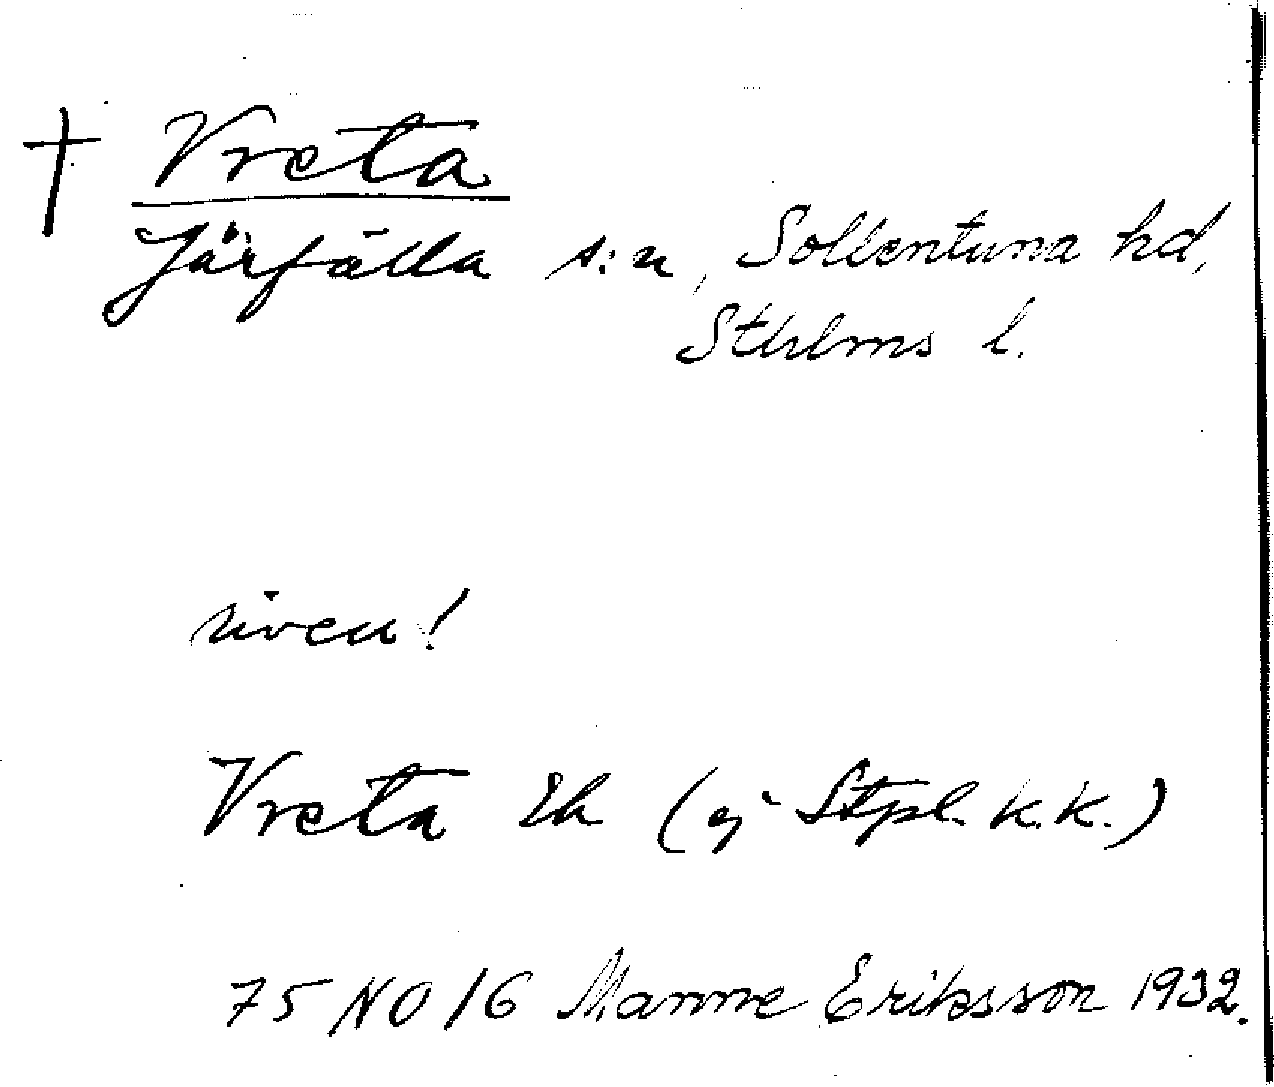 † Vreta
Järfälla s:n, Sollentuna hd,
Sthlms l.
riven!
Vreta Ek (ej Stpl. k.k.)
75 NO/6 Manne Eriksson 1932.